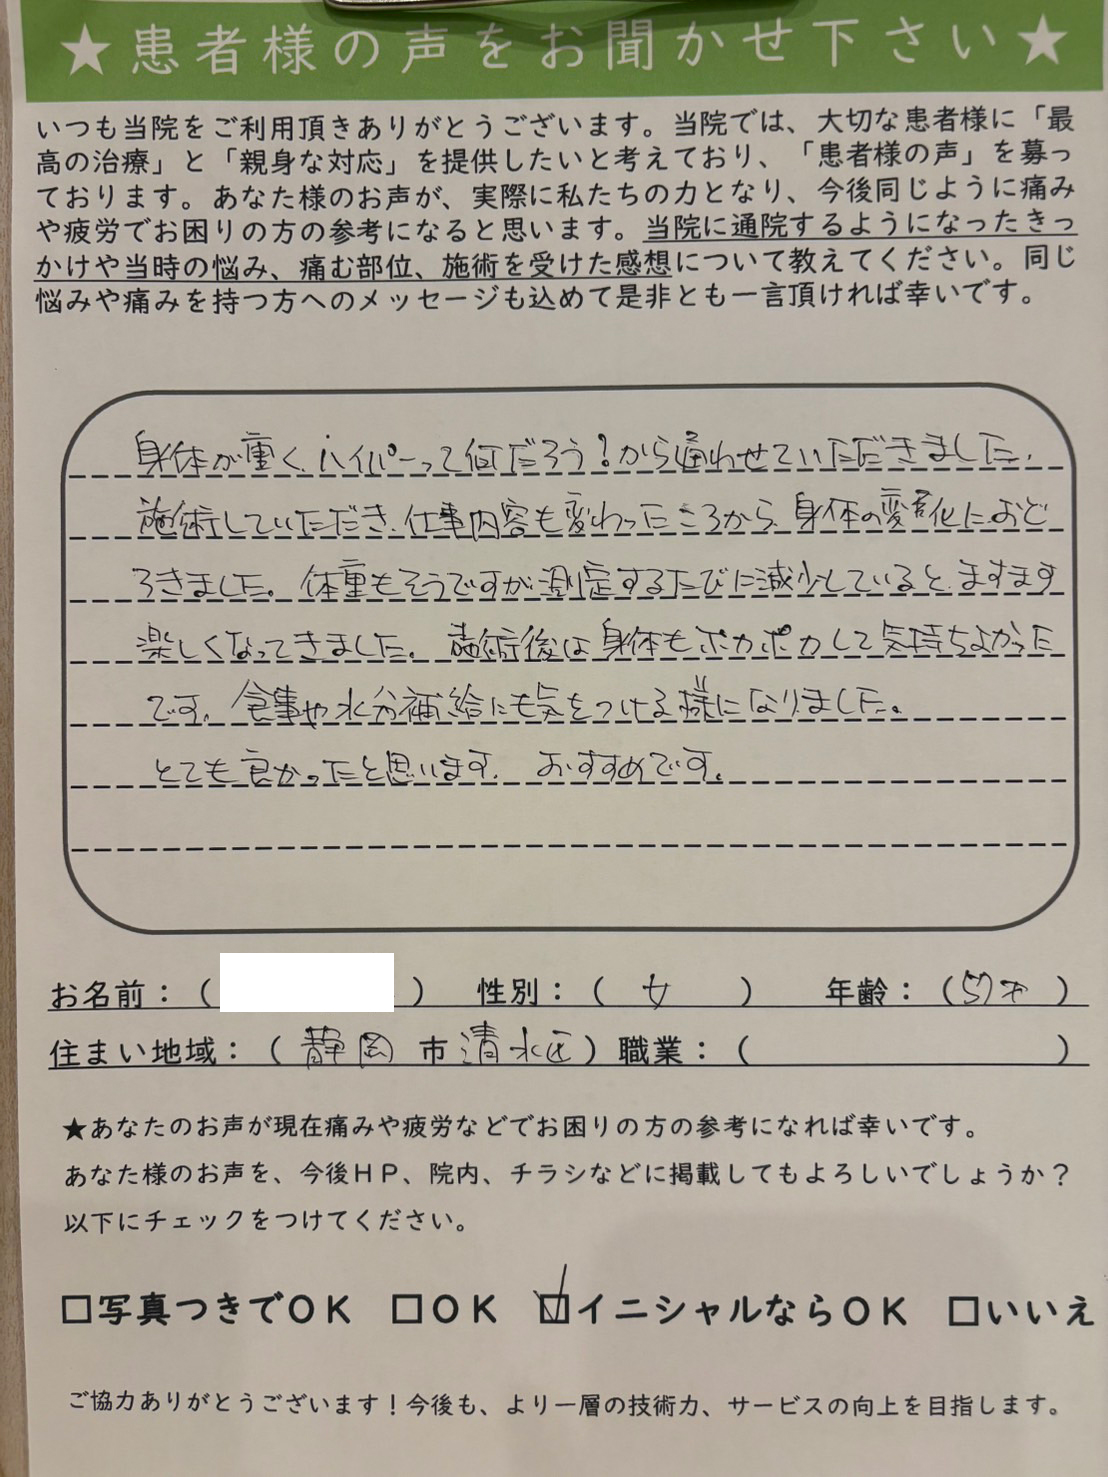 ★患者様の声をお聞かせ下さい★
いつも当院をご利用頂きありがとうございます。当院では、大切な患者様に「最
高の治療」と「親身な対応」を提供したいと考えており、「患者様の声」を募っ
ております。あなた様のお声が、実際に私たちの力となり、今後同じように痛み
や疲労でお困りの方の参考になると思います。当院に通院するようになったきっ
かけや当時の悩み、痛む部位、施術を受けた感想について教えてください。同じ
悩みや痛みを持つ方へのメッセージも込めて是非とも一言頂ければ幸いです。
身体が重く、ハイパーって何だろう?から通わせていただきました。
施術していただき、仕事内容も変わったころから、身体の変化におど
ろきました。体重もそうですが測定するたびに減少していると、ますます
楽しくなってきました。施術後は身体もポカポカして気持ちよかった
です。食事や水分補給にも気をつける様になりました。
とても良かったと思います。おすすめです。
お名前：（ ） 性別：（ 女 ） 年齢：（57才 ）
住まい地域：（ 静岡 市 清水区 ）職業：（ ）
★あなたのお声が現在痛みや疲労などでお困りの方の参考になれば幸いです。
あなた様のお声を、今後ＨＰ、院内、チラシなどに掲載してもよろしいでしょうか？
以下にチェックをつけてください。
□写真つきでＯＫ □ＯＫ ☑イニシャルならＯＫ □いいえ
ご協力ありがとうございます！今後も、より一層の技術力、サービスの向上を目指します。